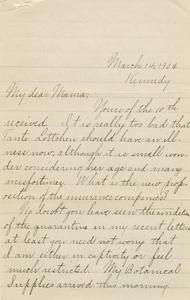 March 14, 1904
Kennedy
My dear Mama:
Yours of the 10th
received. It is really too bad that
Tante Lottchen should have an ill-
ness now, although it is small won-
der considering her age and many
misfortunes. What is the new prop-
osition of the insurance companies?
No doubt you have seen the
of the quarantine in my recent letters
at least you need not worry that
I am either in captivity or feel
much restricted. My Botanical
Supplies arrived this morning.